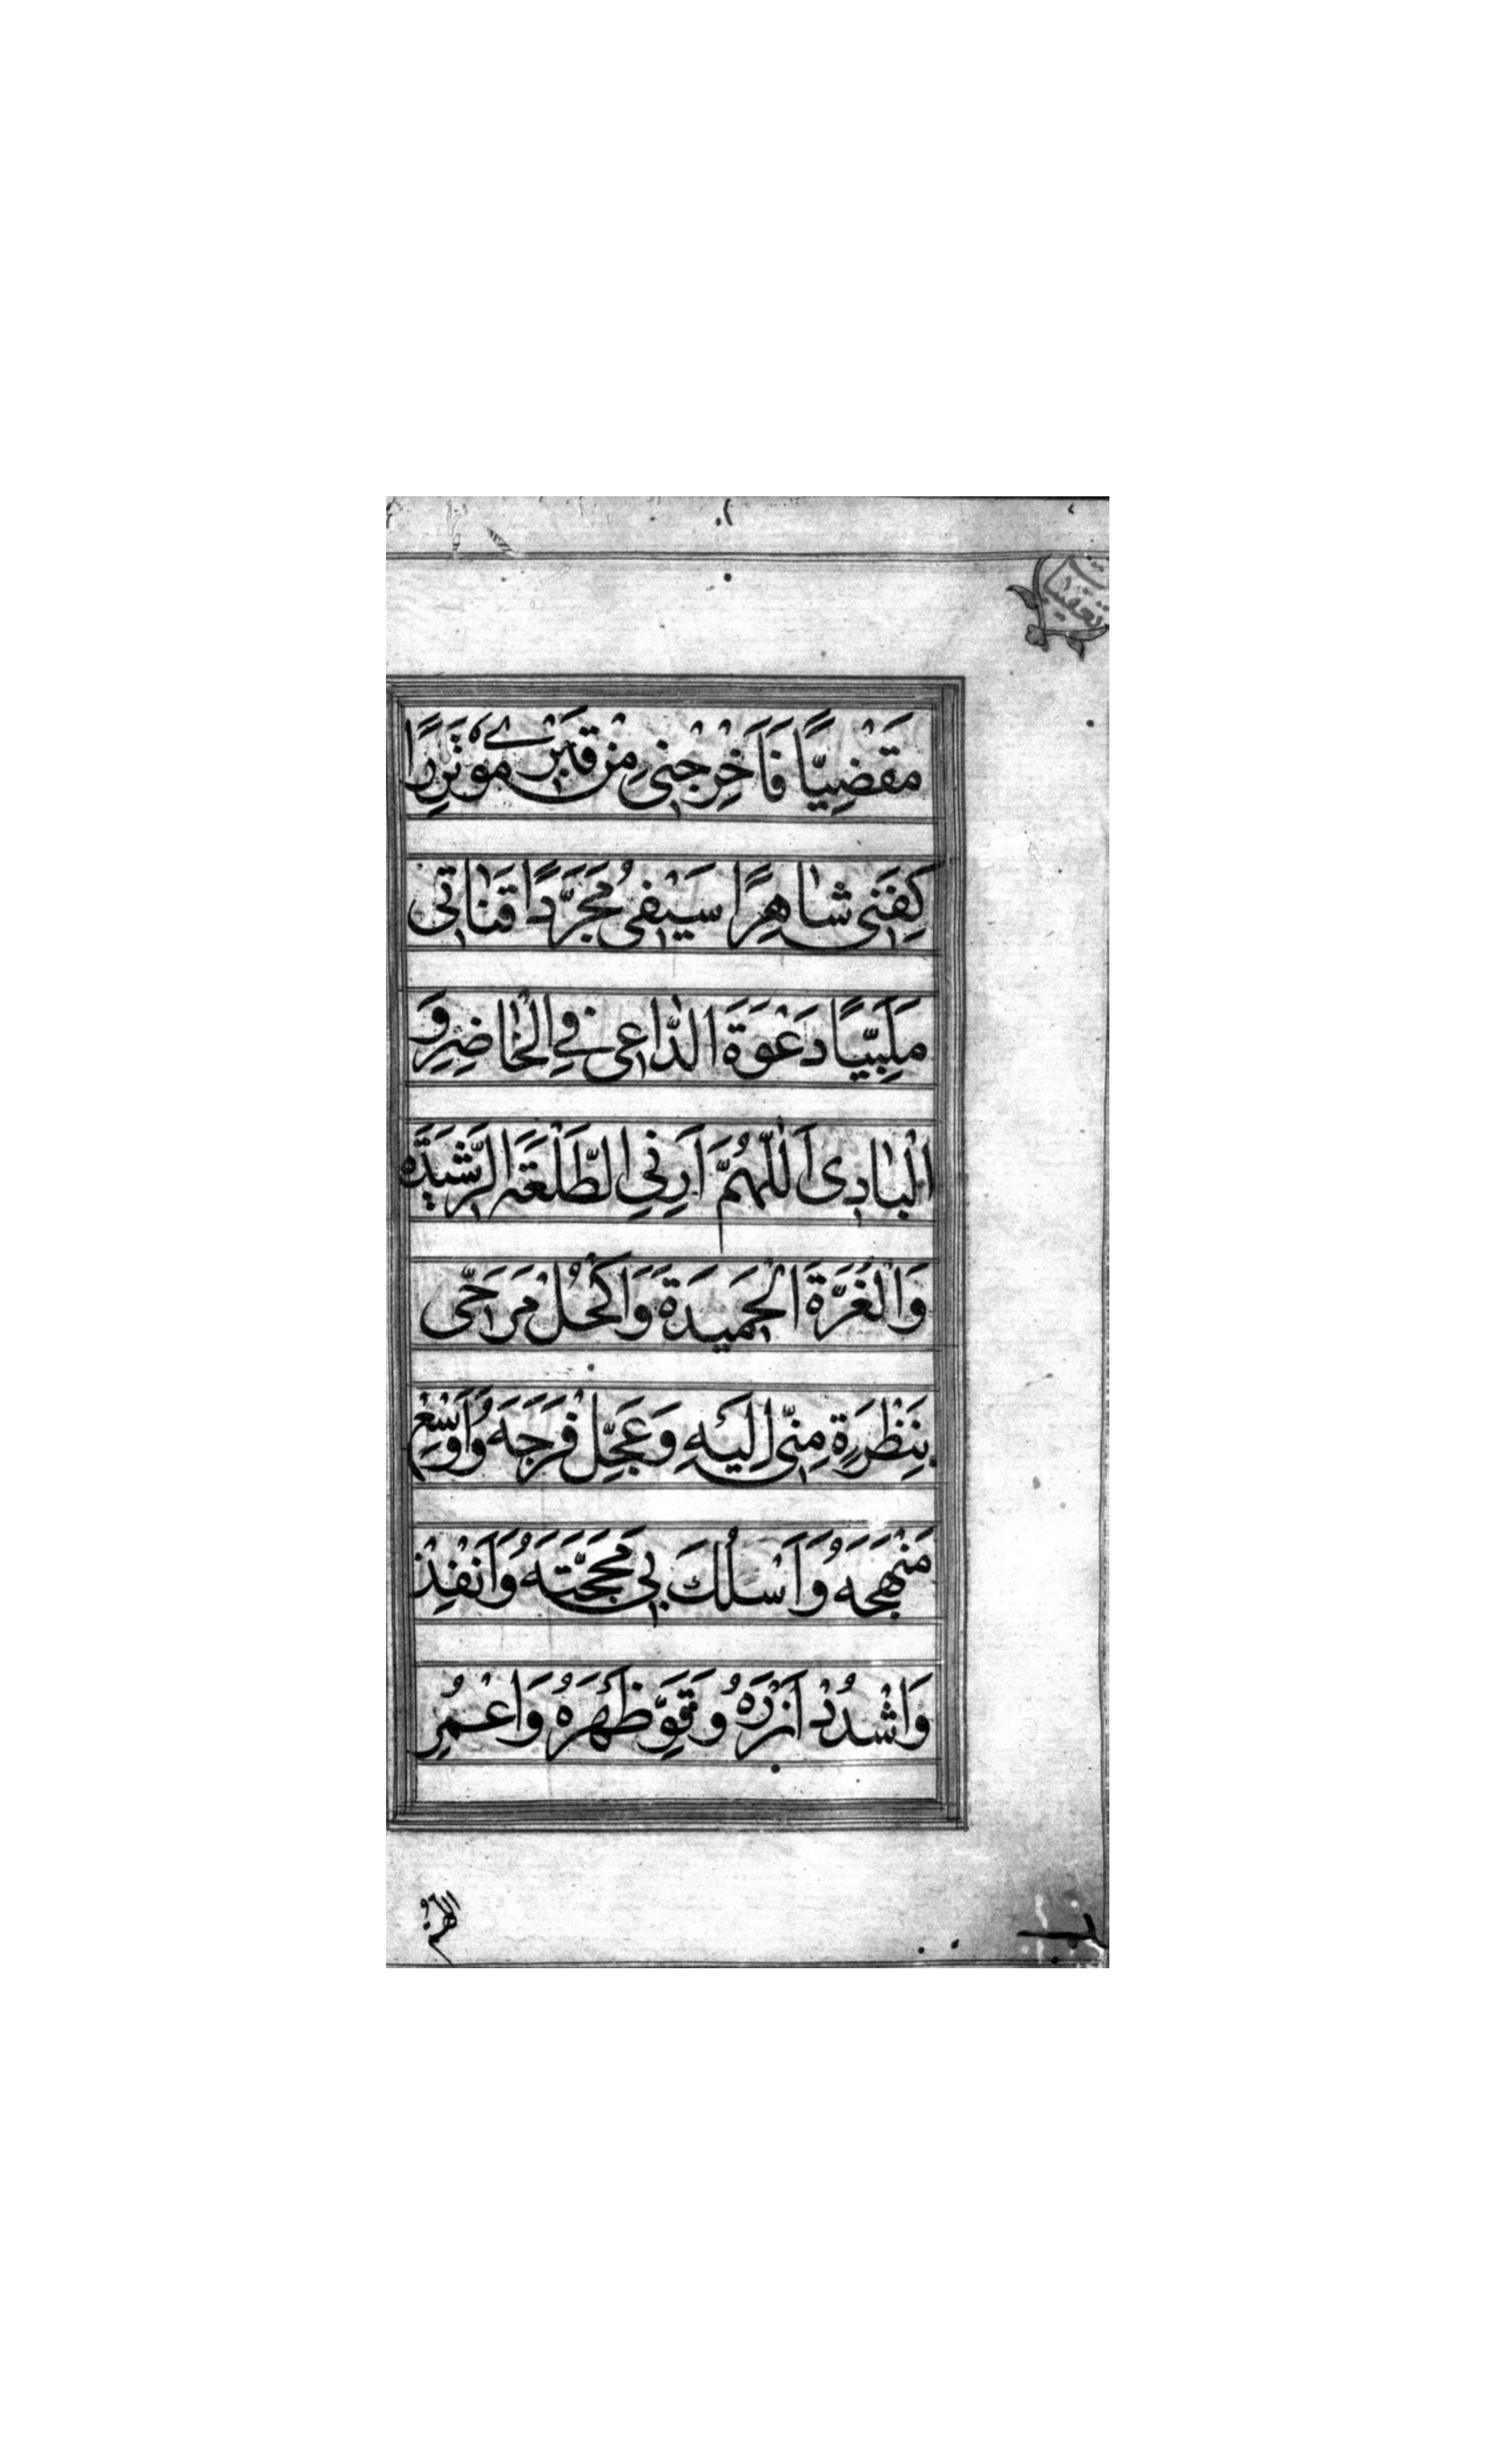 تعقیبات
مَقْضِيًّا فَاَخْرِجْنِي مِنْ قَبْرِي مُؤْتَزِرًا
كَفَنِي شَاهِرًا سَيْفِي مُجَرَّدًا قَنَاتِي
مُلَبِّيًا دَعْوَةَ الدَّاعِي فِي الْحَاضِرِ وَ
الْبَادِي اَللّٰهُمَّ اَرِنِي الطَّلْعَةَ الرَّشِيدَةَ
وَالْغُرَّةَ الْحَمِيدَةَ وَاكْحُلْ مَرَحِّي
بِنَظْرَةٍ مِنِّي اِلَيْهِ وَعَجِّلْ فَرَجَهُ وَاَوْسِعْ
مَنْهَجَهُ وَاَسْلُكَ بِي مَحَجَّتَهُ وَاَنْفِذْ
وَاشْدُدْ اَزْرَهُ وَقَوِّ ظَهْرَهُ وَاعْمُرِ
اللهم